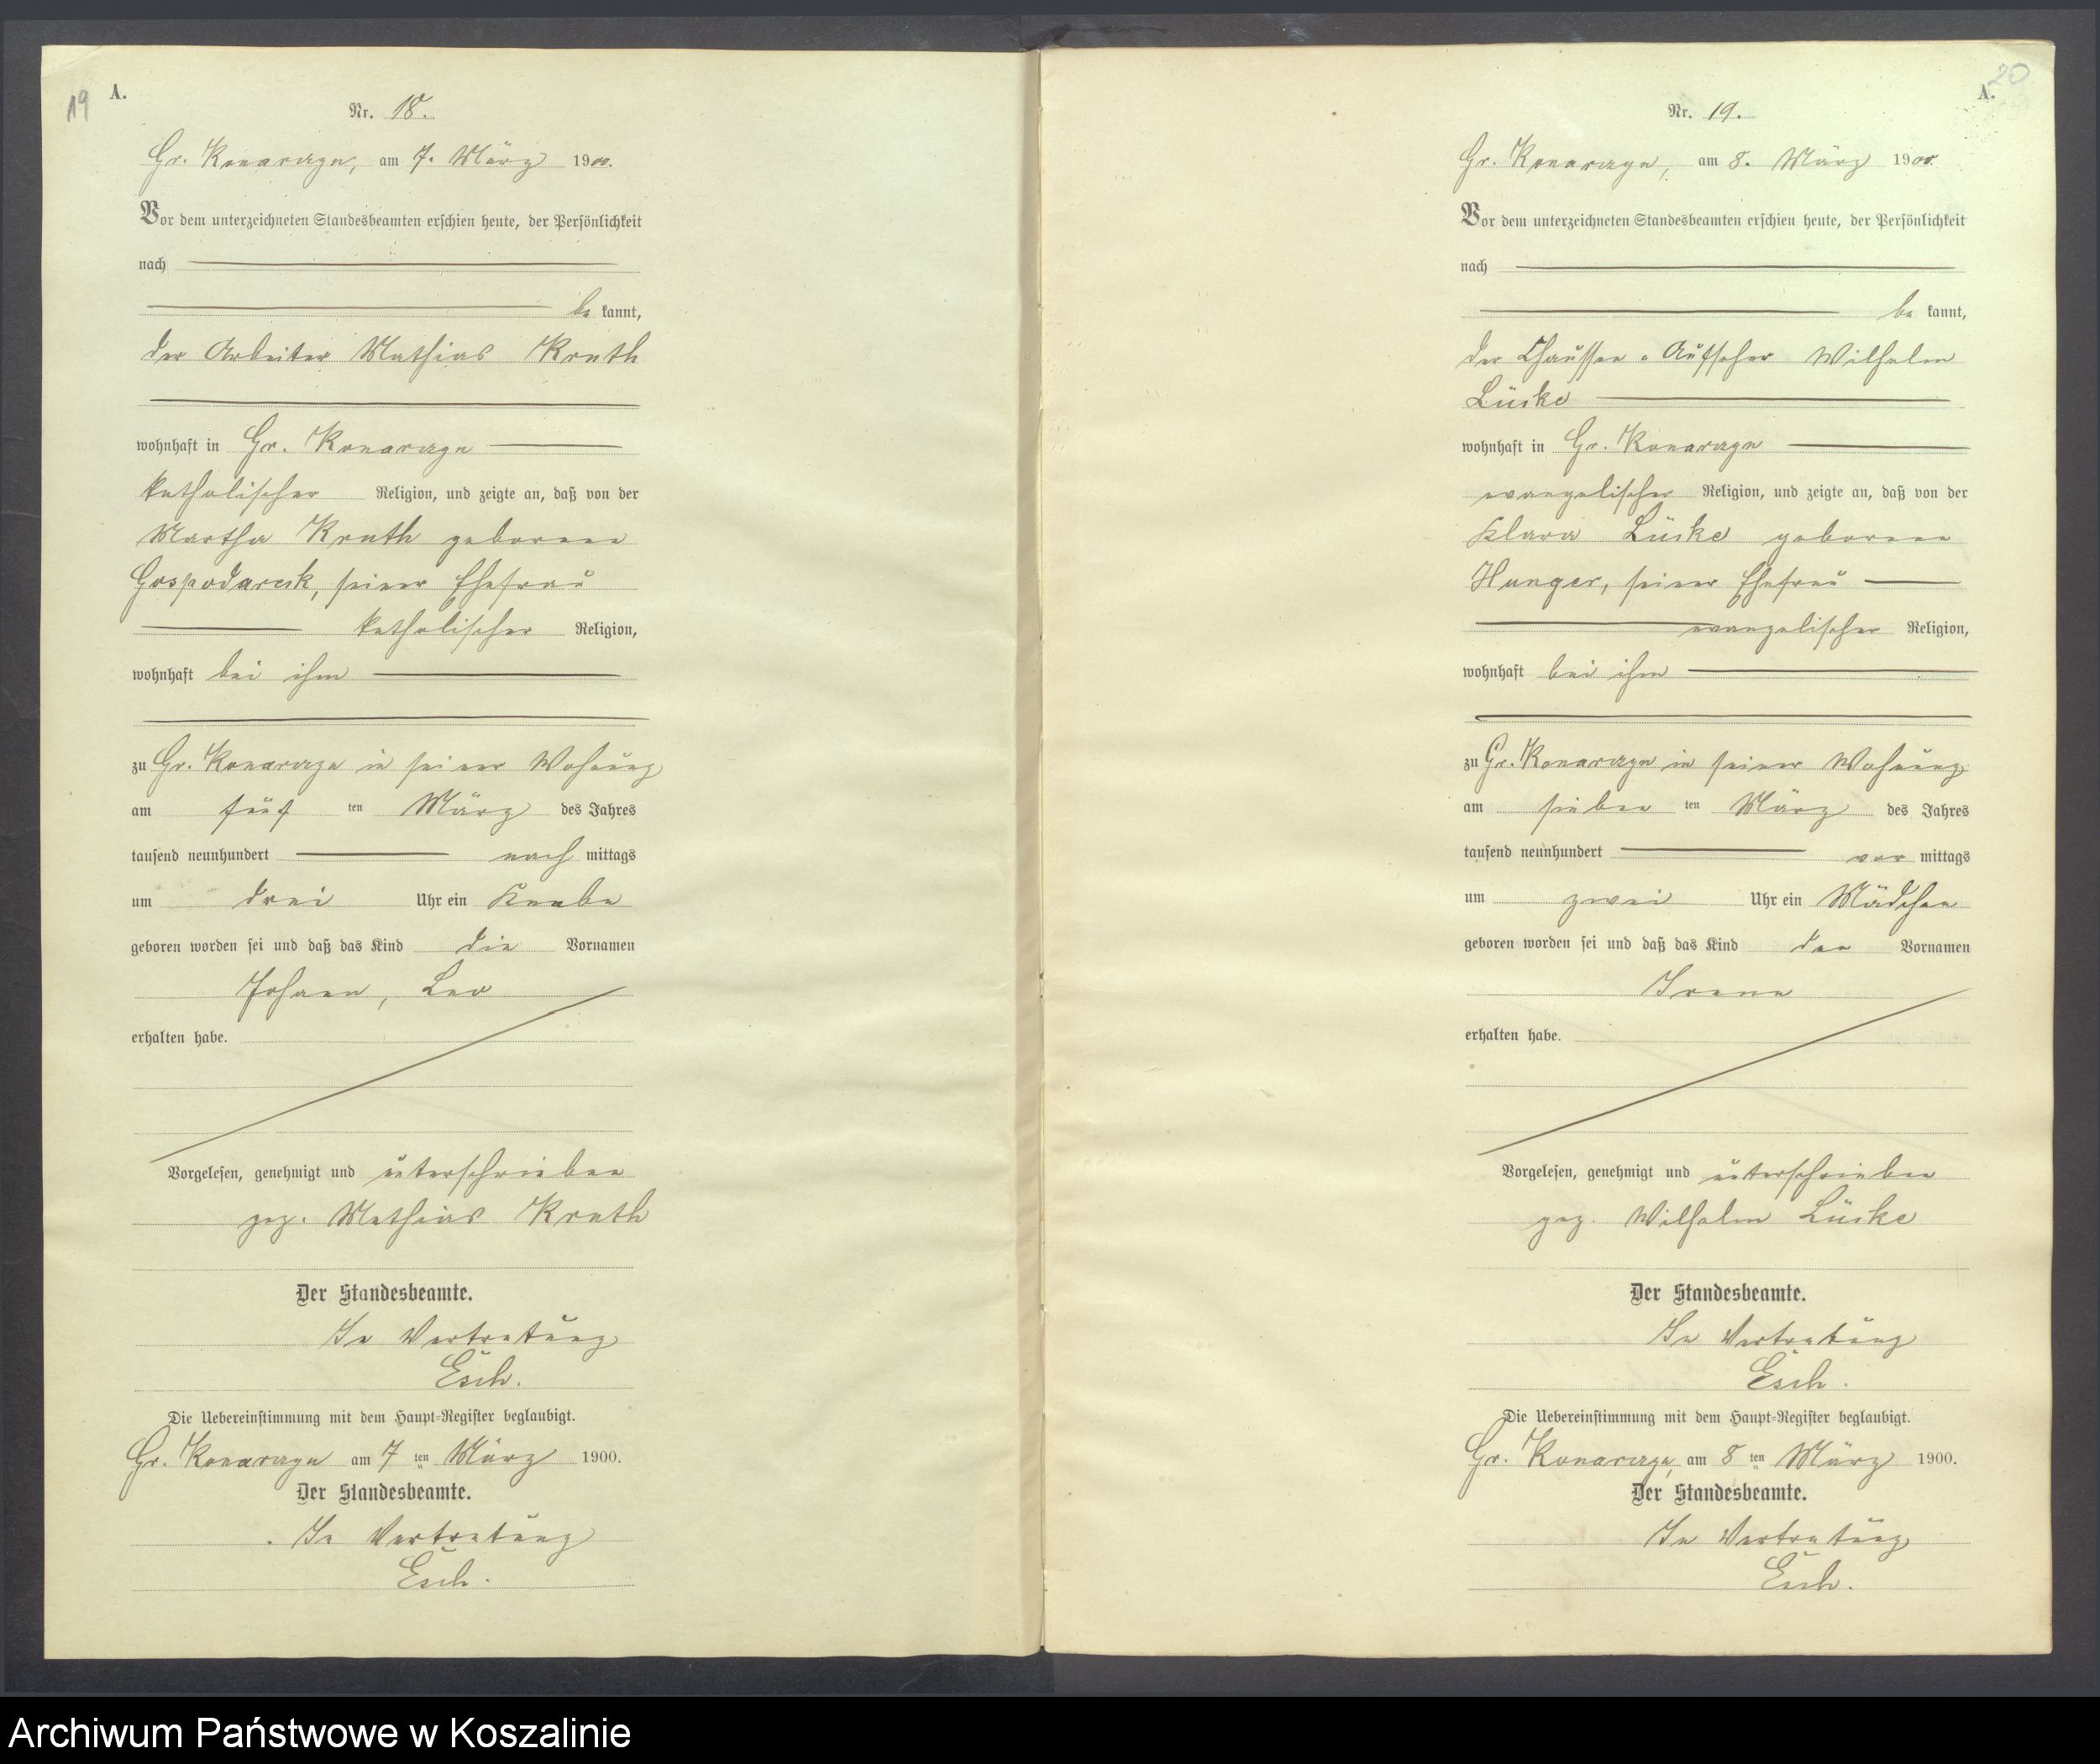 19
A.
Nr. 18.
Gr. Konarczyn, am 7. März 1900.
Vor dem unterzeichneten Standesbeamten erschien heute, der Persönlichkeit
nach
be kannt,
der Arbeiter Mathias Kruth
wohnhaft in Gr. Konarczyn
katholischer Religion, und zeigte an, daß von der
Martha Kruth geborenen
Gospodarek, seiner Ehefrau
katholischer Religion,
wohnhaft bei ihm
zu Gr. Konarczyn in seiner Wohnung
am fünf ten März des Jahres
tausend neunhundert nach mittags
um drei Uhr ein Knabe
geboren worden sei und daß das Kind die Vornamen
Johann, Leo
erhalten habe.
Vorgelesen, genehmigt und unterschrieben
gez. Mathias Kruth
Der Standesbeamte.
In Vertretung
Esch.
Die Uebereinstimmung mit dem Haupt-Register beglaubigt.
Gr. Konarczyn am 7 ten März 1900.
Der Standesbeamte.
In Vertretung
Esch.
20
A.
Nr. 19.
Gr. Konarczyn, am 8. März 1900.
Vor dem unterzeichneten Standesbeamten erschien heute, der Persönlichkeit
nach
be kannt,
der Chaussee-Aufseher Wilhelm
Lücke
wohnhaft in Gr. Konarczyn
evangelischer Religion, und zeigte an, daß von der
Klara Lücke geborenen
Hunger, seiner Ehefrau
evangelischer Religion,
wohnhaft bei ihm
zu Gr. Konarczyn in seiner Wohnung
am sieben ten März des Jahres
tausend neunhundert vor mittags
um zwei Uhr ein Mädchen
geboren worden sei und daß das Kind den Vornamen
Irene
erhalten habe.
Vorgelesen, genehmigt und unterschrieben
gez. Wilhelm Lücke
Der Standesbeamte.
In Vertretung
Esch.
Die Uebereinstimmung mit dem Haupt-Register beglaubigt.
Gr. Konarczyn, am 8 ten März 1900.
Der Standesbeamte.
In Vertretung
Esch.
Archiwum Państwowe w Koszalinie